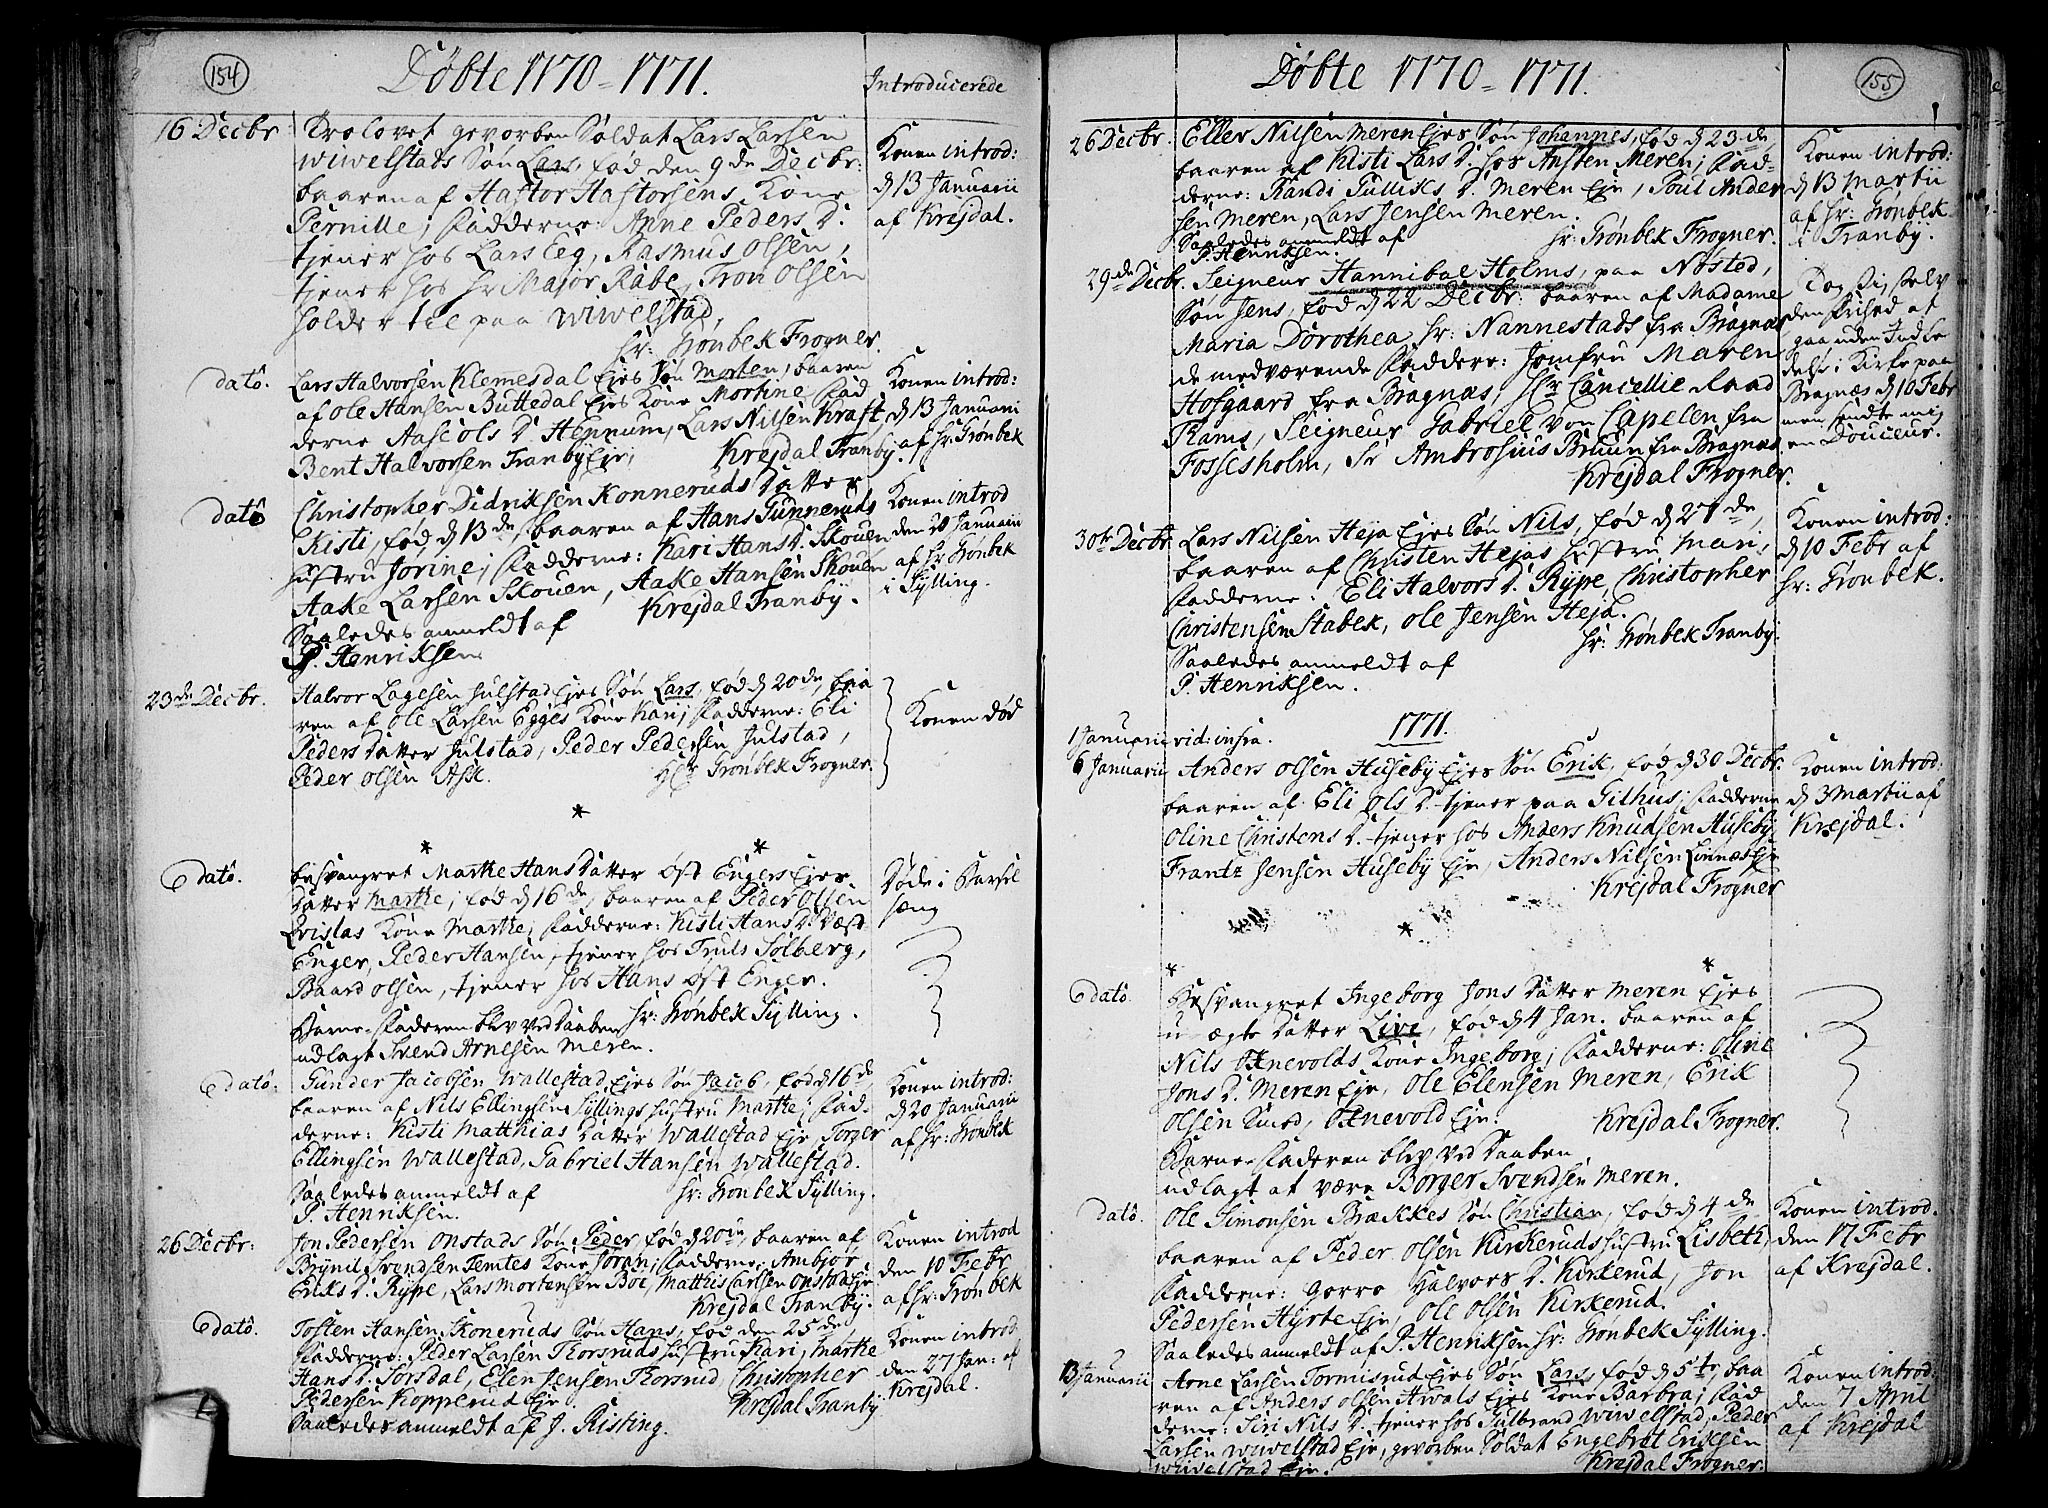 154
Döbte 1770-1771.
Introducerede
16 Decbr
Trolovet gevorben Soldat Lars Larsen
Wiwelstads Søn Lars, fød den 9de Decbr:
baaren af Hastor Hastorsens Kone
Pernille; Fadderne: Anne Peders D.
tjener hos Lars Eeg, Rasmus Olsen,
tjener hos Hr Major Rabe, Tron Olsen
holder til paa Wiwelstad,
Hr: Grønbek Frogner.
Konen introd:
d 13 Januarii
af Krejdal.
dato.
Lars Halvorsen Klemmesdal Ejes Søn Morten, baaren
af Ole Hansen Buttedal Ejes Kone Mortine, Fad
derne Aase Ols D. Hennum, Lars Nilsen Kraft,
Bent Halvorsen Tranby Eje;
Krejdal Tranby.
Konen introd:
d 13 Januarii
af Hr: Grønbek
dato
Christopher Didriksen Konneruds Datter
Kisti, fød d 13de, baaren af Hans Gunneruds
Hustru Jorine; Fadderne: Kari Hans D. Skouen
Aake Larsen Skouen, Aake Hansen Skouen
Krejdal Tranby.
Saaledes anmeldt af
P. Henriksen
Konen introd
den 20 Januarii
af Hr Grønbek
i Sylling.
23de Decbr.
Halvor Lagesen Julstad Ejes Søn Lars, fød d 20de, baa
ren af Ole Larsen Egges Kone Kari; Fadderne: Eli
Peders Datter Julstad, Peder Pedersen Julstad,
Peder Olsen Ask.
Hr Grønbek Frogner.
Konen død
*
* *
dato.
besvangret Marthe Hans Datter Øst Engers Ejes
Datter Marthe, fød d 16de, baaren af Peder Olsen
Qvislas Kone Marthe; Fadderne: Kisti Hans D. Væst
Enger, Peder Hansen, tjener hos Truls Solberg,
Baard Olsen, tjener hos Hans Øst Enger.
Hr: Grønbek Sylling.
Barne-Faderen blev ved Daaben
udlagt Svend Arnesen Meren.
Døde i Barsel
sæng
dato.
Gunder Jacobsen Wallestad Ejes Søn Jacob, fød d 16de,
baaren af Nils Ellingsen Syllings Hustru Marthe; Fad-
derne: Kisti Matthias Datter Wallestad Eje, Torger
Ellingsen Wallestad, Gabriel Hansen Wallestad.
Saaledes anmeldt af
Hr: Grønbek Sylling.
P. Henriksen.
Konen introd:
d 20 Januarii
af Hr: Grønbek
26 Decbr:
Jon Pedersen Onstads Søn Peder, fød d 20de, baaren af
Brynil Svendsen Temtes Kone Joran; Fadderne: Ambjør
Eriks D. Rype, Lars Mortensen Boe, Matthis Carlsen Onstad Eje
Krejdal Tranby.
Konen introd
den 10 Febr
af Hr: Grønbek
dato.
Tosten Hansen Skoneruds Søn Hans, fød den 25de
Fadderne: Peder Larsen Thorsruds Hustru Kari, Marthe
Hans D. Sørsdal, Elen Jensen Thorsrud, Christopher
Pedersen Kopperud Eje.
Krejdal Tranby.
Saaledes anmeldt af J. Risting.
Konen introd
den 27 Jan: af
Krejdal.
155
Döbte 1770-1771.
26 Decbr.
Eller Nilsen Meren Ejes Søn Johannes, fød d 23de,
baaren af Kisti Lars D. hos Ansten Meren; Fad-
derne: Randi Gulliks D. Meren Eje, Poul Ander
sen Meren, Lars Jensen Meren.
Saaledes anmeldt af
Hr: Grønbek Frogner.
P. Henriksen.
Konen introd:
d 13 Martii
af Hr: Grønbek
i Tranby.
29de Decbr.
Seigneur Hannibal Holms, paa Nøsted,
Søn Jens, fød d 22 Decbr: baaren af Madame
Maria Dorothea Hr: Nannestads fra Bragnæs
de medværende Faddere: Jomfru Maren
Hofgaard fra Bragnæs, Hr Cancellie Raad
Rams, Seigneur Gabriel von Capelen fra
Fossesholm, Sr Ambrosius Bruun fra Bragnæs
Krejdal Frogner.
Tog sig selv
den Frihed at
gaa uden Indle
delse i Kirke paa
Bragnæs d 10 Febr
men sendte mig
en Douceur.
30te Decbr
Lars Nilsen Heja Ejes Søn Nils, fød d 27de,
baaren af Christen Hejas Hustru Mari,
Fadderne: Eli Halvors D. Rype, Christopher
Christensen Stabek, Ole Jensen Heja.
Hr: Grønbek Tranby.
Saaledes anmeldt af
P. Henriksen.
Konen introd:
d 10 Febr af
Hr: Grønbek.
1771.
1 Januarii vid: infra.
6 Januarii
Anders Olsen Huseby Ejes Søn Erik, fød d 30 Decbr.
baaren af Eli Ols D. tjener paa Gilhus; Fadderne
Oline Christens D. tjener hos Anders Knudsen Huseby
Frantz Jensen Huseby Eje, Anders Nilsen Linnæs Eje
Krejdal Frogner
Konen introd:
d 3 Martii af
Krejdal.
*
* *
dato.
Besvangret Ingeborg Jons Datter Meren Ejes
u-ægte Datter Live, fød d 4 Jan. baaren af
Nils Ønevolds Kone Ingeborg; Fadderne: Oline
Jons D. Meren Eje, Ole Elensen Meren, Erik
Olsen Smed, Ønevold Eje.
Krejdal Frogner.
Barne-Faderen blev ved Daaben
udlagt at være Borger Svendsen Meren.
dato.
Ole Simonsen Brækkes Søn Christian, fød d 4de
baaren af Peder Olsen Kirkeruds Hustru Lisbeth,
Fadderne: Gorro Halvors D. Kirkerud, Jon
Pedersen Hyrte Eje, Ole Olsen Kirkerud.
Saaledes anmeldt af P. Henriksen Hr: Grønbek Sylling.
Konen introd.
den 17 Febr
af Krejdal.
13 Januarii
Arne Larsen Tormisrud Ejes Søn Lars, fød d 5te, baa
ren af Anders Olsen Awals Ejes Kone Barbra; Fad
derne: Siri Nils D. tjener hos Gulbrand Wiwelstad, Peder
Larsen Wiwelstad Eje, gevorben Soldat Engebret Eriksen
Wiwelstad Eje.
Krejdal Frogner.
Konen introd
den 7 April
af Krejdal